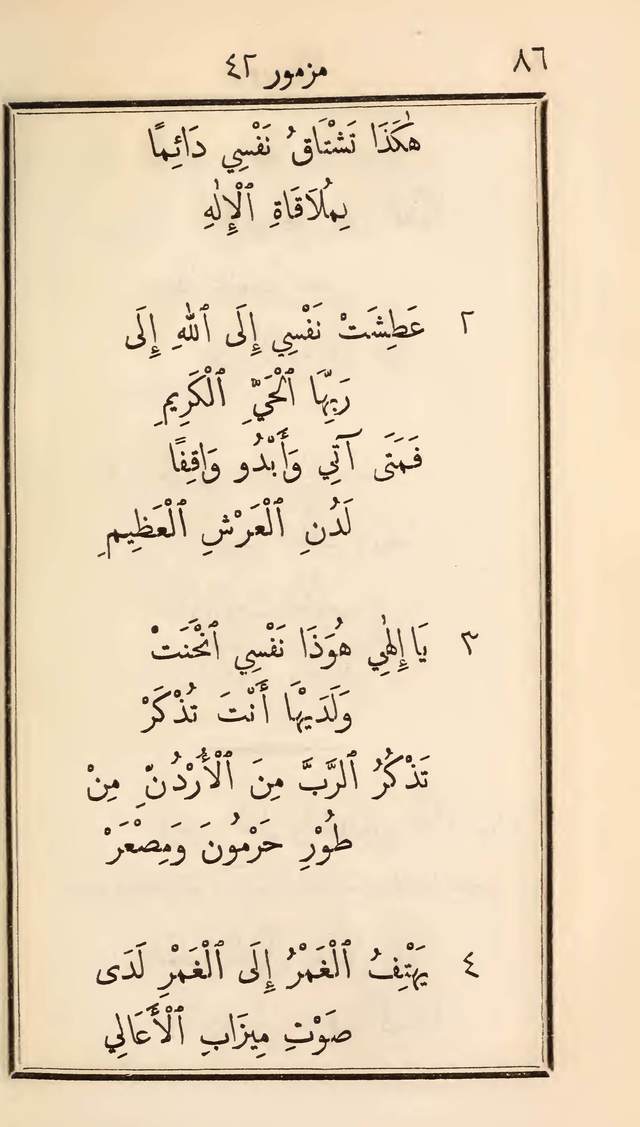 ٨٦
مزمور ٤٢
هٰكَذَا تَشْتَاقُ نَفْسِي دَائِمًا
بِمُلَاقَاةِ ٱلْإِلٰهِ
٢ عَطِشَتْ نَفْسِي إِلَى ٱللّٰهِ إِلَى
رَبِّهَا ٱلْحَيِّ ٱلْكَرِيمِ
فَمَتَى آتِي وَأَبْدُو وَاقِفًا
لَدُنِ ٱلْعَرْشِ ٱلْعَظِيمِ
٣ يَا إِلٰهِي هُوَذَا نَفْسِي ٱنْحَنَتْ
وَلَدَيْهَا أَنْتَ تُذْكَرْ
تَذْكُرُ ٱلرَّبَّ مِنَ ٱلْأُرْدُنِّ مِنْ
طُوْرِ حَرْمُونَ وَمِصْعَرْ
٤ يَهْتِفُ ٱلْغَمْرُ إِلَى ٱلْغَمْرِ لَدَى
صَوْتِ مِيزَابِ ٱلْأَعَالِي